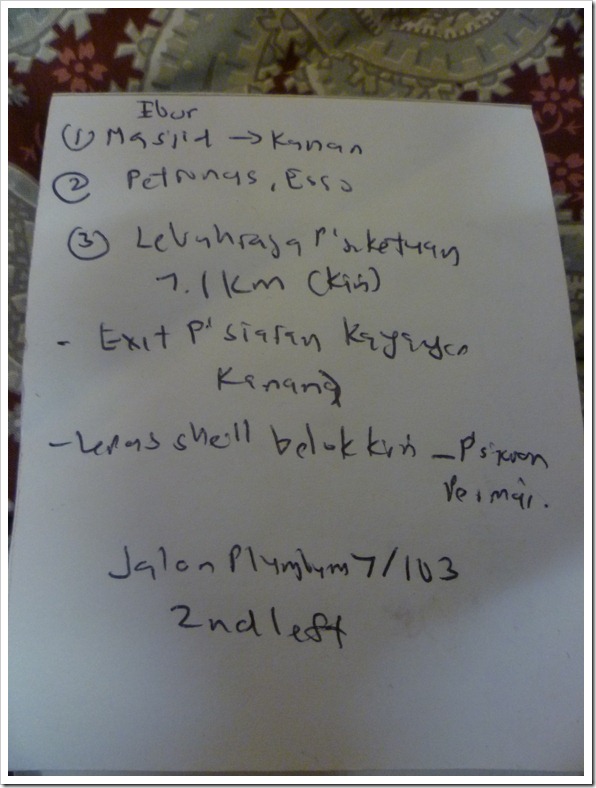 Ebor
① Masjid → Kanan
② Petronas, Esso
③ Lebuhraya P'sekutuan
7.1 km (Kiri)
- Exit P'siaran Kayangan
Kanan
- Lepas shell belok kiri - P'siaran
Permai.
Jalan Plumbum 7/103
2nd left